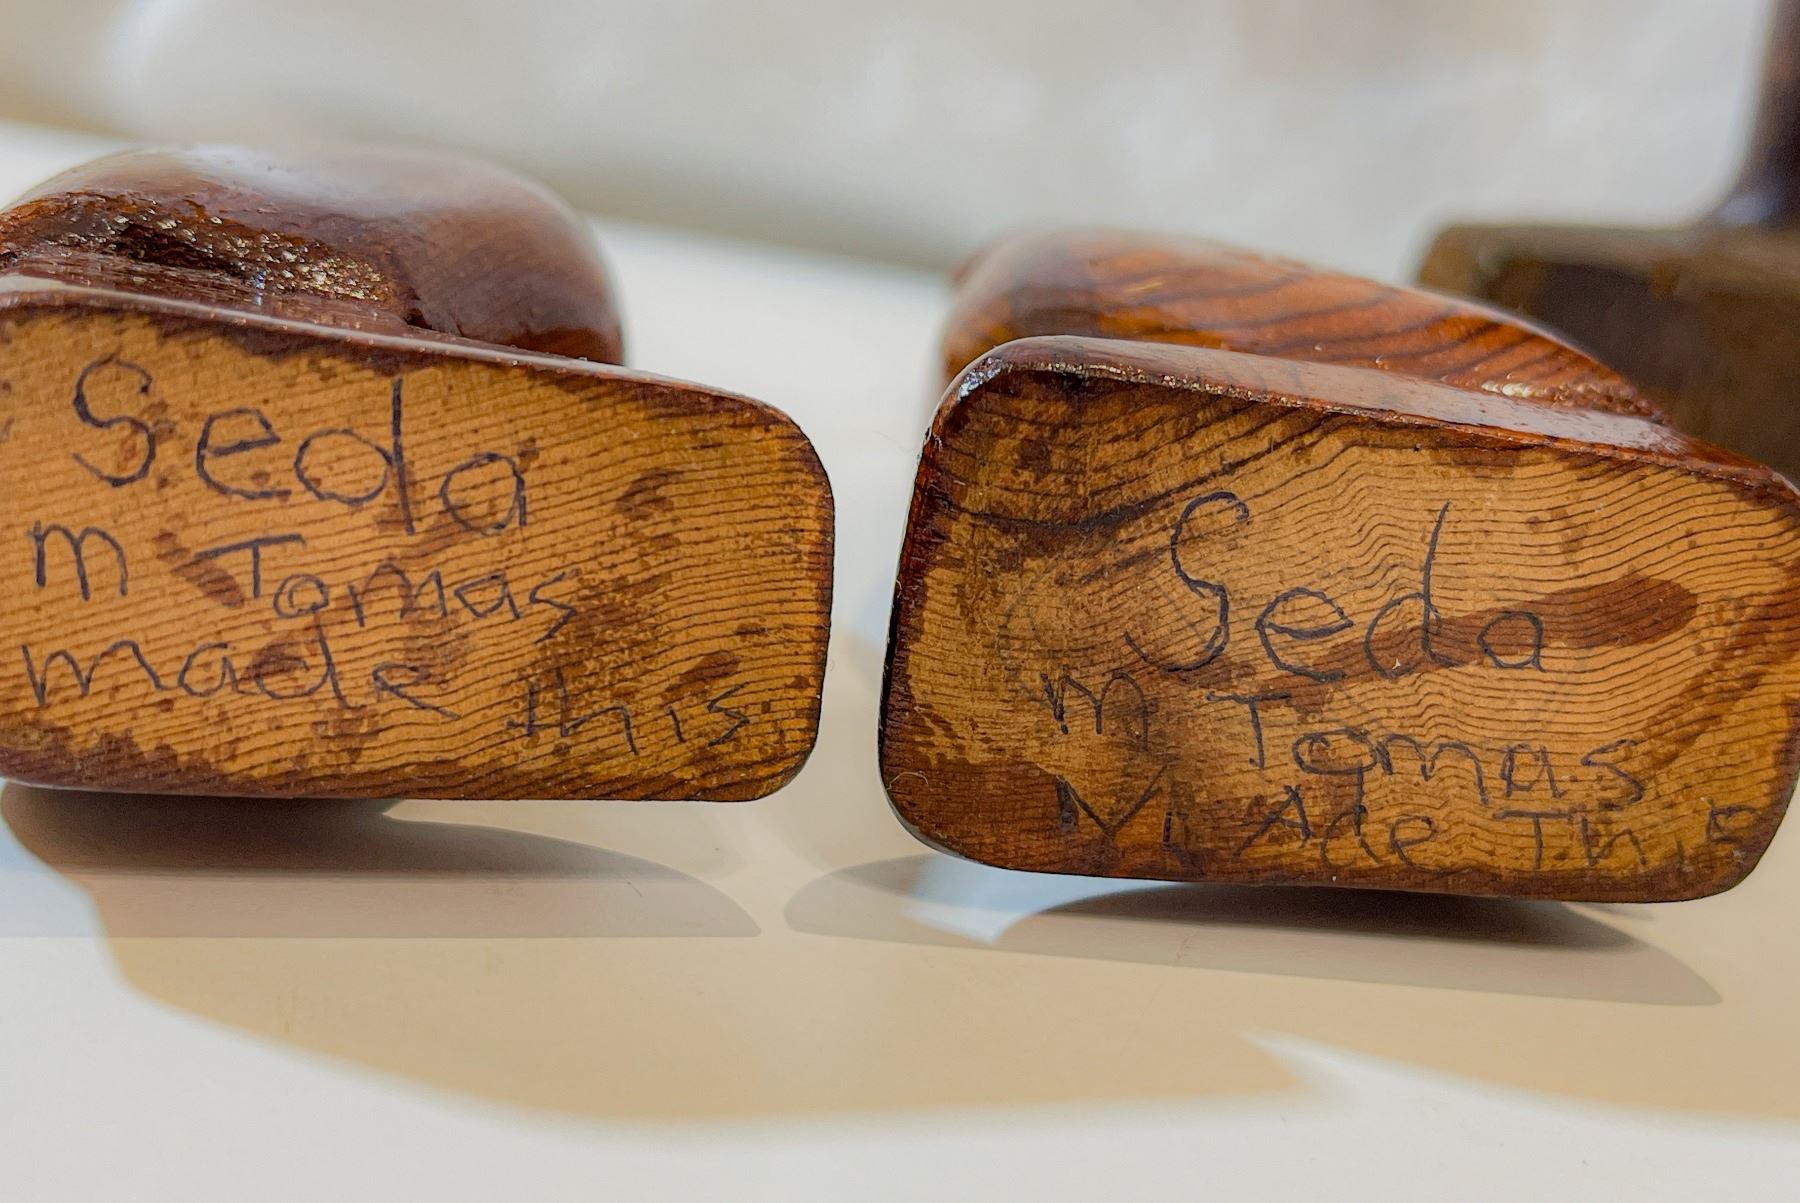 Seda
m Tomas
made this
Seda
m Tomas
MAde This